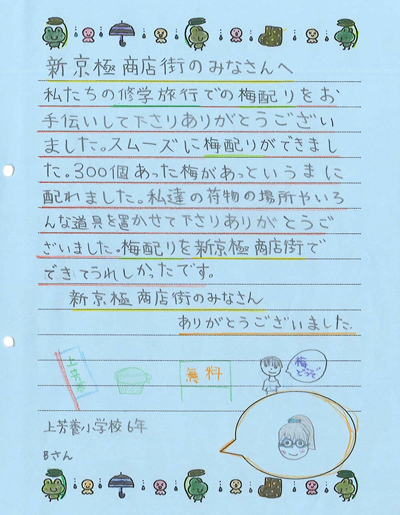 新京極商店街のみなさんへ
私たちの修学旅行での梅配りをお
手伝いして下さりありがとうござい
ました。スムーズに梅配りができまし
た。300個あった梅があっというまに
配れました。私達の荷物の場所やいろ
んな道具を置かせて下さりありがとうご
ざいました。梅配りを新京極商店街で
できてうれしかったです。
新京極商店街のみなさん
ありがとうございました。
無料
梅
どうぞ
上芳養小学校6年
Bさん